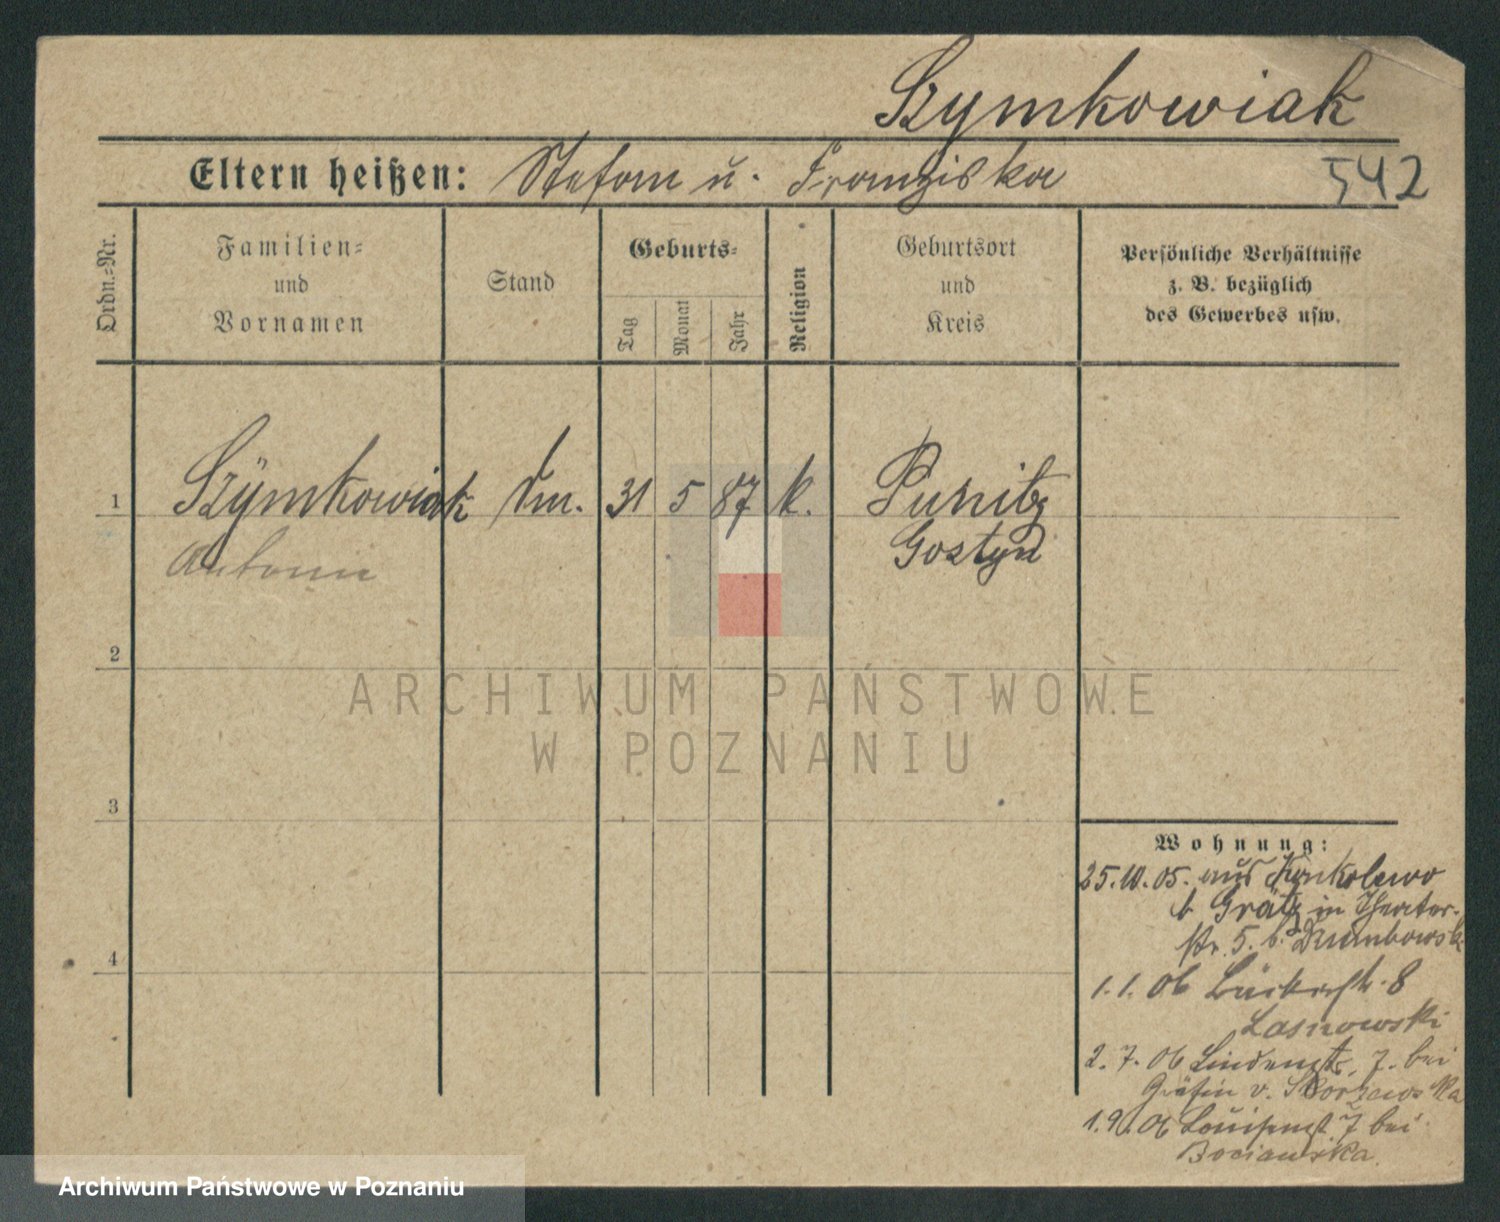 Szymkowiak
Eltern heißen: Stefan u. Franziska
542
Ordn.-Nr.
Familien-
und
Vornamen
Stand
Geburts-
Tag
Monat
Jahr
Religion
Geburtsort
und
Kreis
Persönliche Verhältnisse
z. B. bezüglich
des Gewerbes usw.
1
Szymkowiak
31
5
87
k.
Punitz
Gostyn
2
3
4
ARCHIWUM PAŃSTWOWE
W POZNANIU
Wohnung:
25.10.05. aus Konkolewo
b Grätz in Theater-
str. 5. b.
1.1.06 Bäckerstr. 8
Lasnowski
2.7.06 Lindenstr. 7. bei
Gräfin v. Skorzewska
1.9.06 Louisenst. 7 bei
Bocianska
Archiwum Państwowe w Poznaniu